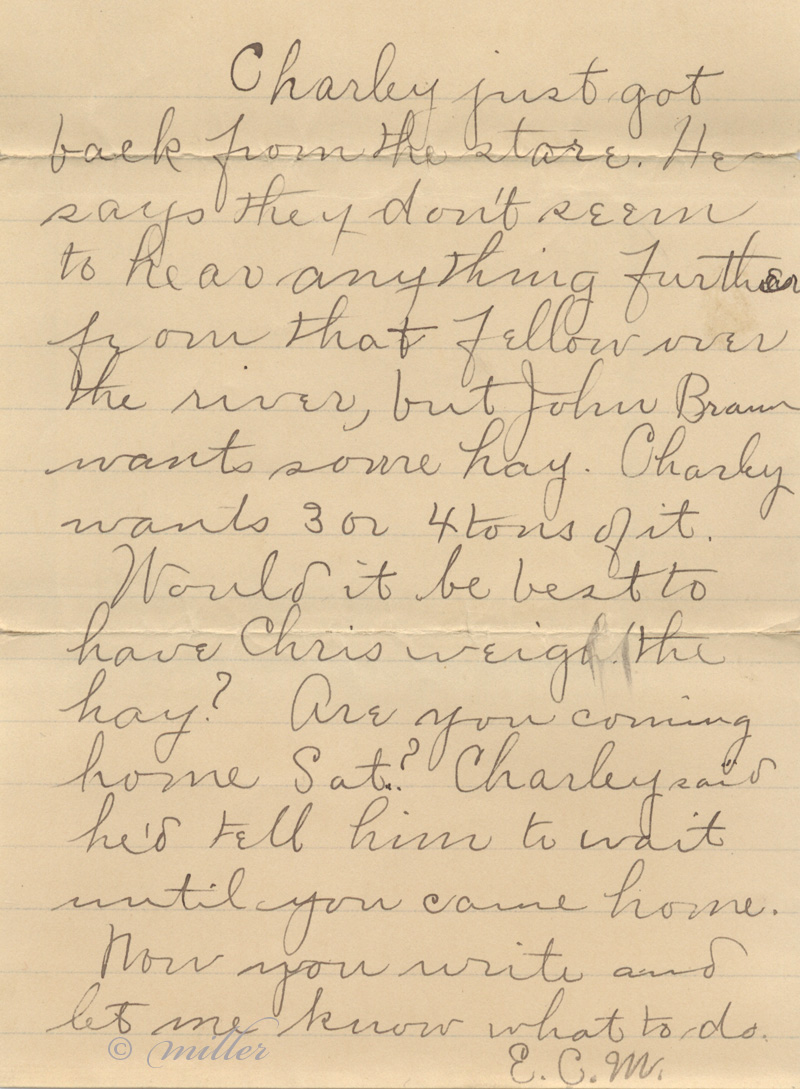 Charley just got
back from the store. He
says they don't seem
to hear anything further
from that fellow over
the river, but John Braun
wants some hay. Charley
wants 3 or 4 tons of it.
Would it be best to
have Chris weigh the
hay? Are you coming
home Sat.? Charley said
he'd tell him to wait
until you came home.
Now you write and
let me know what to do.
E. C. M.
© miller